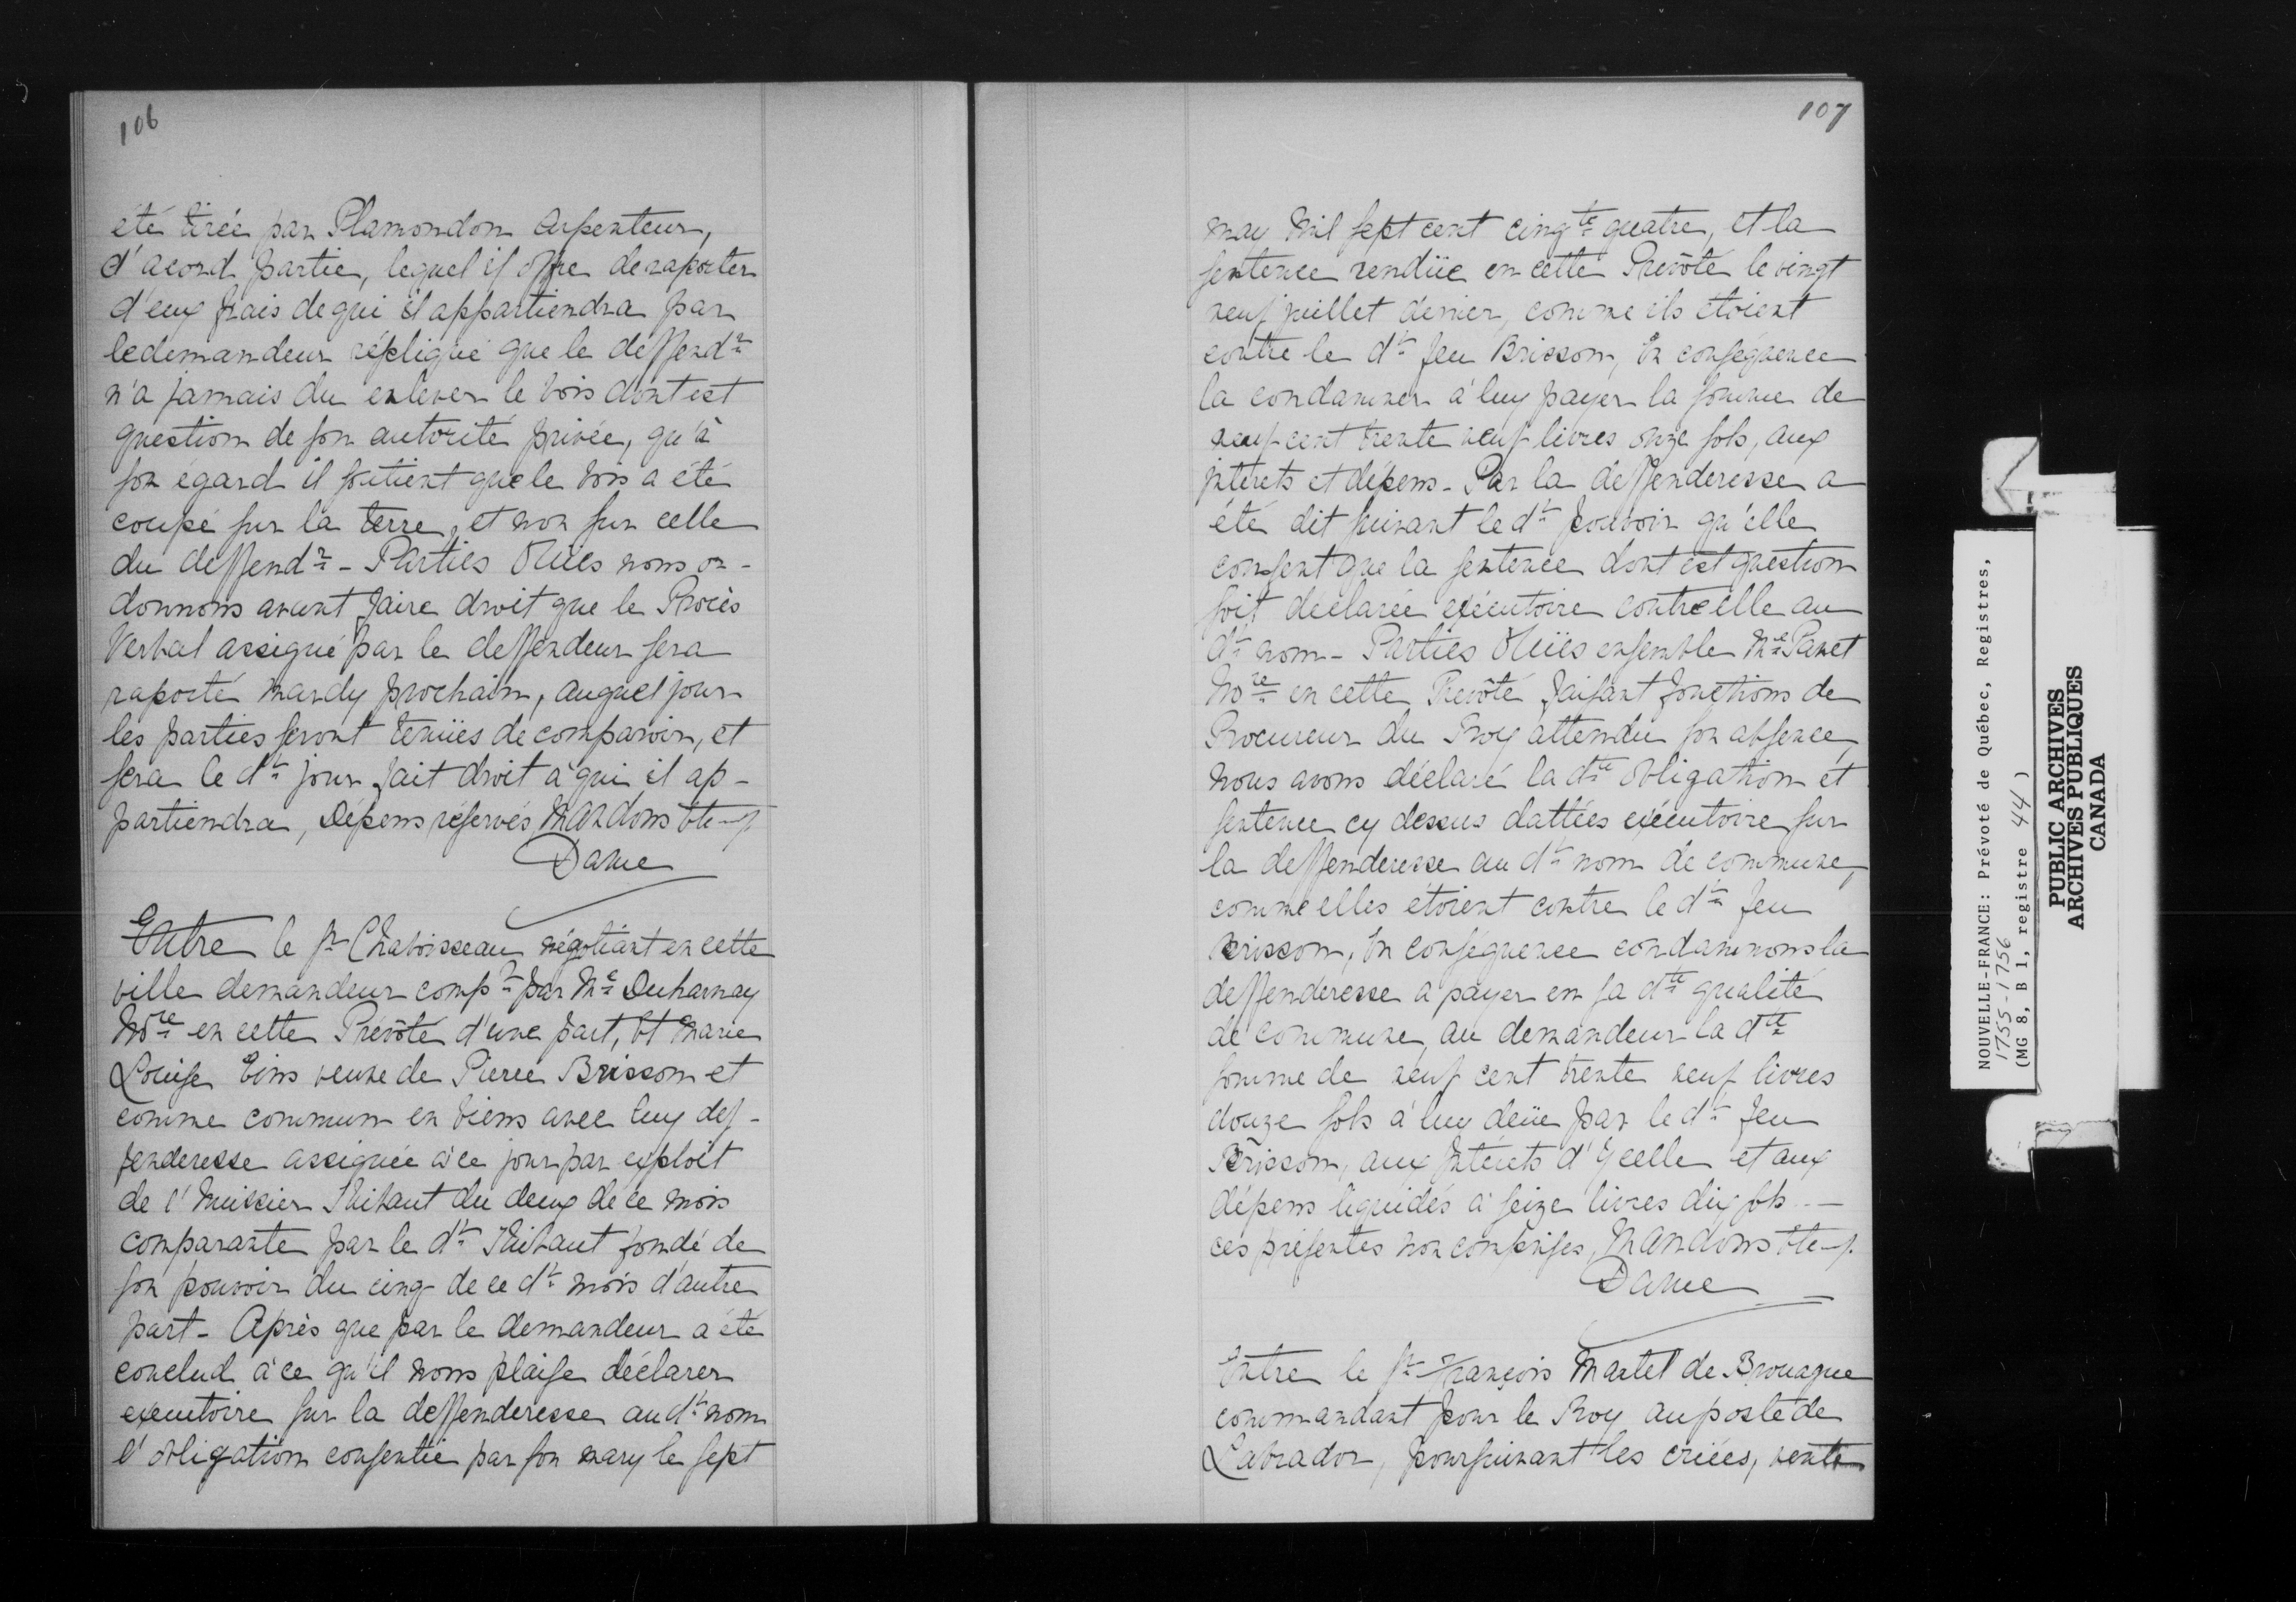 106
été tirée par Plamondon Arpenteur,
d'acord partie, lequel il offre de raporter
d'eux frais de qui il appartiendra par
le demandeur répliqué que le deffendr
n'a jamais du enlever le bois dont est
question de son autorité privée, qu'à
son égard il soutient que le bois a été
coupé sur la terre, et non sur celle
du deffendr - Parties Ouies nous or-
donnons avant faire droit que le Procès
Verbal assigné par le deffendeur sera
raporté mardy prochain, auquel jour
les parties seront tenües de comparoir, et
sera le dt jour fait droit à qui il ap-
partiendra, Dépens réservés, Mandons
Daine
Entre le Sr Chaboisseau négotiant en cette
ville demandeur compt par Me Duharnay
Nore en cette Prévôté d'une part, Et Marie
Louise Eins veuve de Pierre Brisson et
comme commun en biens avec luy def-
fenderesse assignée à ce jour par exploit
de l'huissier Thibaut du deux de ce mois
comparante par le dt Thibaut fondé de
son pouvoir du cinq de ce dt mois d'autre
part - Après que par le demandeur a été
conclud à ce qu'il nous plaise déclarer
executoire sur la deffenderesse au dt nom
l'obligation consentie par son mary le sept
107
may mil sept cent cinqte quatre, et la
sentence rendüe en cette Prevôté le vingt
neuf juillet dernier, comme ils étoient
contre le dt feu Brisson, En conséquence
la condamner à luy payer la somme de
neuf cent trente neuf livres onze sols, aux
jntérets et dépens - Par la deffenderesse a
été dit suivant le dt pouvoir qu'elle
consent que la sentence dont est question
soit déclarée exécutoire contre elle au
dt nom - Parties Ouïes ensemble Me Panet
Nore en cette Prevôté faisant fonctions de
Procureur du Roy attendu son absence,
Nous avons déclaré la dte obligation et
sentence cy dessus dattées exécutoire sur
la deffenderesse au dt nom de commune,
comme elles étoient contre le dt feu
Brisson, En conséquence condamnons la
deffenderesse a payer en sa dte qualité
de commune, au demandeur la dte
somme de neuf cent trente neuf livres
douze sols à luy deüe par le dt feu
Brisson, aux Intérets d'Ycelle et aux
dépens liquidés à seize livres dix sols -
ces présentes non comprises, Mandons
Daine
Entre le Sr François Martel de Brouague
commandant pour le Roy au poste de
Labrador, poursuivant les criées, vente
NOUVELLE-FRANCE: Prévoté de Québec, Registres,
1755-1756
(MG 8, B 1, registre 44)
PUBLIC ARCHIVES
ARCHIVES PUBLIQUES
CANADA